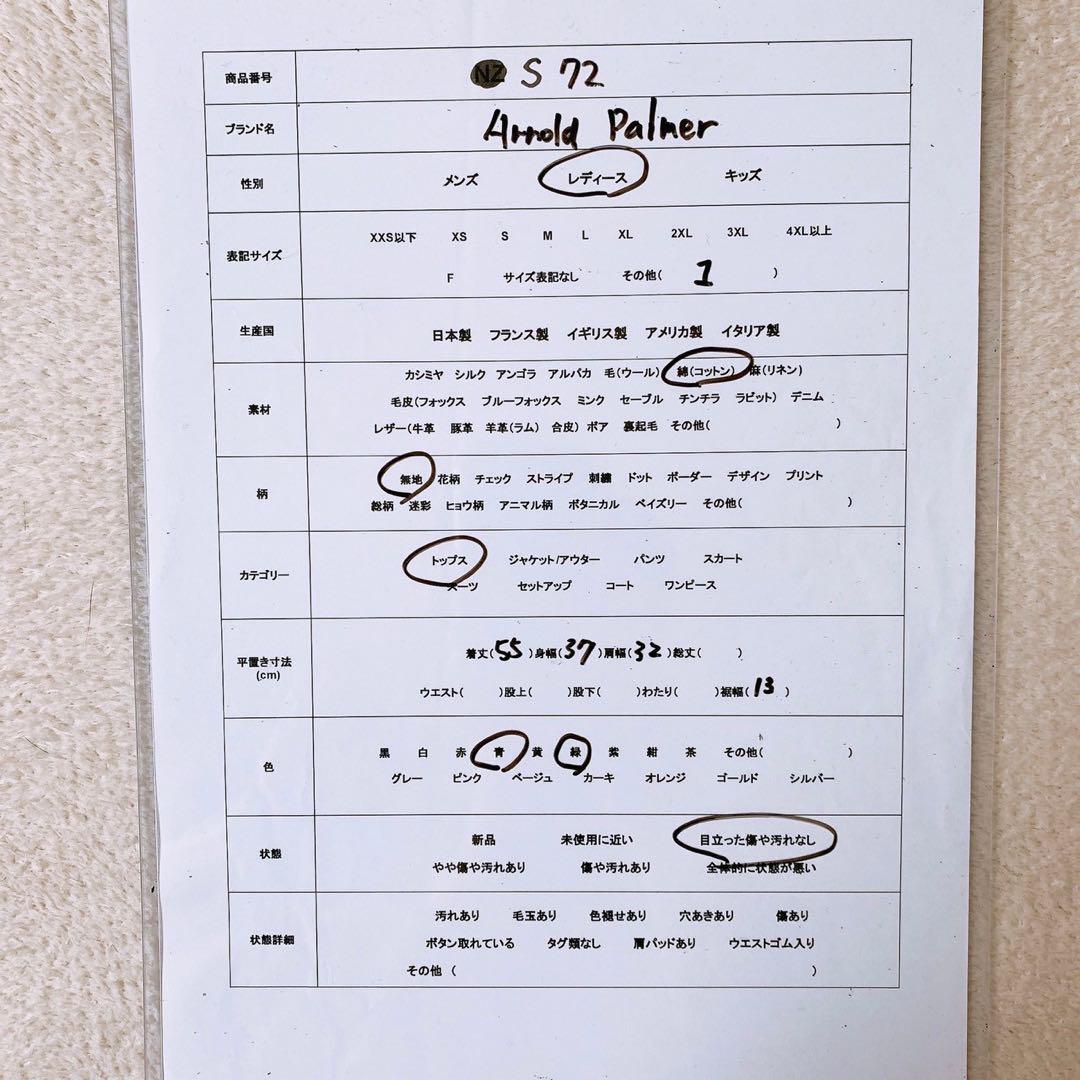 商品番号 NZ S 72
ブランド名 Arnold Palmer
性別 メンズ レディース キッズ
XXS以下 XS S M L XL 2XL 3XL 4XL以上
表記サイズ
F サイズ表記なし その他( 1 )
生産国 日本製 フランス製 イギリス製 アメリカ製 イタリア製
カシミヤ シルク アンゴラ アルパカ 毛(ウール) 綿(コットン) 麻(リネン)
素材 毛皮(フォックス ブルーフォックス ミンク セーブル チンチラ ラビット) デニム
レザー(牛革 豚革 羊革(ラム) 合皮) ボア 裏起毛 その他( )
無地 花柄 チェック ストライプ 刺繍 ドット ボーダー デザイン プリント
柄
総柄 迷彩 ヒョウ柄 アニマル柄 ボタニカル ペイズリー その他( )
トップス ジャケット/アウター パンツ スカート
カテゴリー
スーツ セットアップ コート ワンピース
着丈(55)身幅(37)肩幅(32)総丈( )
平置き寸法
(cm)
ウエスト( )股上( )股下( )わたり( )裾幅(13)
黒 白 赤 青 黄 緑 紫 紺 茶 その他( )
色
グレー ピンク ベージュ カーキ オレンジ ゴールド シルバー
新品 未使用に近い 目立った傷や汚れなし
状態
やや傷や汚れあり 傷や汚れあり 全体的に状態が悪い
汚れあり 毛玉あり 色褪せあり 穴あきあり 傷あり
状態詳細 ボタン取れている タグ類なし 肩パッドあり ウエストゴム入り
その他 ( )